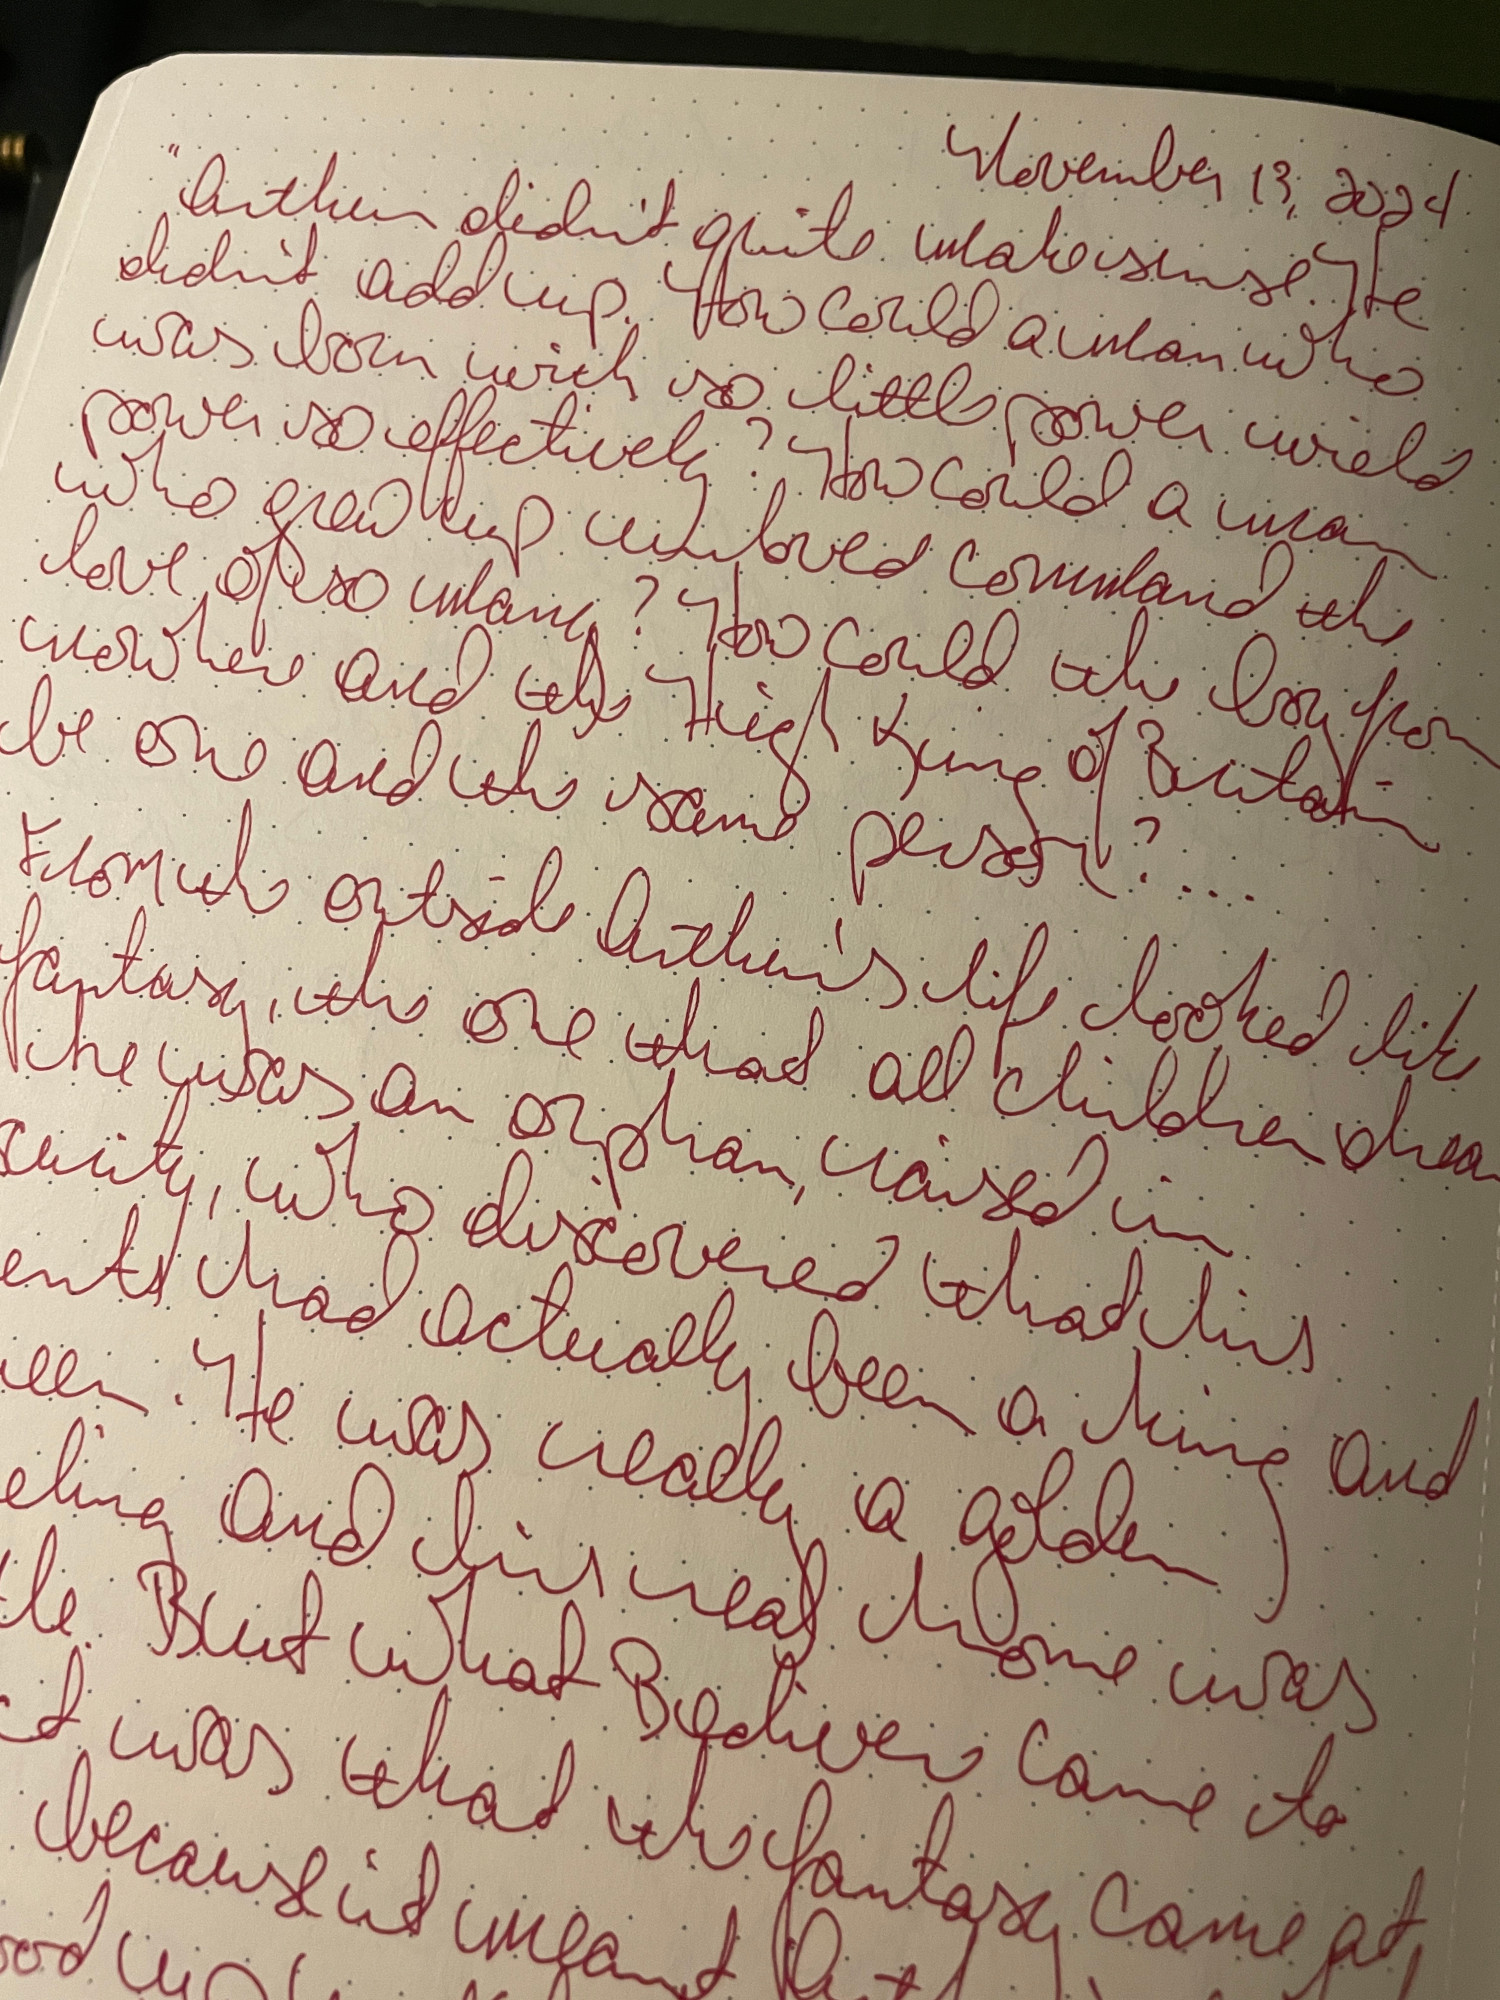 November 13, 2024
"Arthur didn't quite make sense. He
didn't add up. How could a man who
was born with so little power wield
power so effectively? How could a man
who grew up unloved command the
love of so many? How could the boy from
nowhere and the High King of Britain
be one and the same person?....
From the outside Arthur's life looked like
fantasy, the one that all children dream
he was an orphan, raised in
scurity, who discovered that his
ents had actually been a king and
ueen. He was really a golden
eling and his real home was
tle. But what Bedivere came to
ct was that the fantasy came at
because it meant